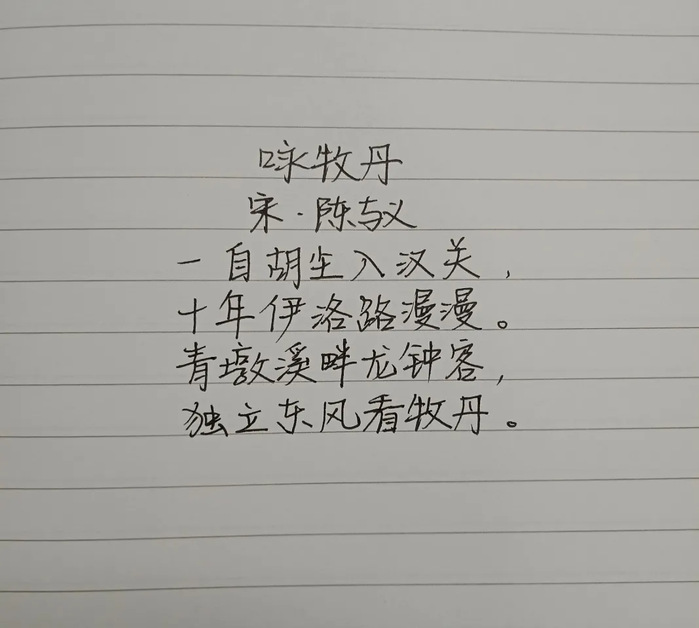 咏牧丹
宋·陈与义
一自胡尘入汉关,
十年伊洛路漫漫。
青墩溪畔龙钟客,
独立东风看牧丹。